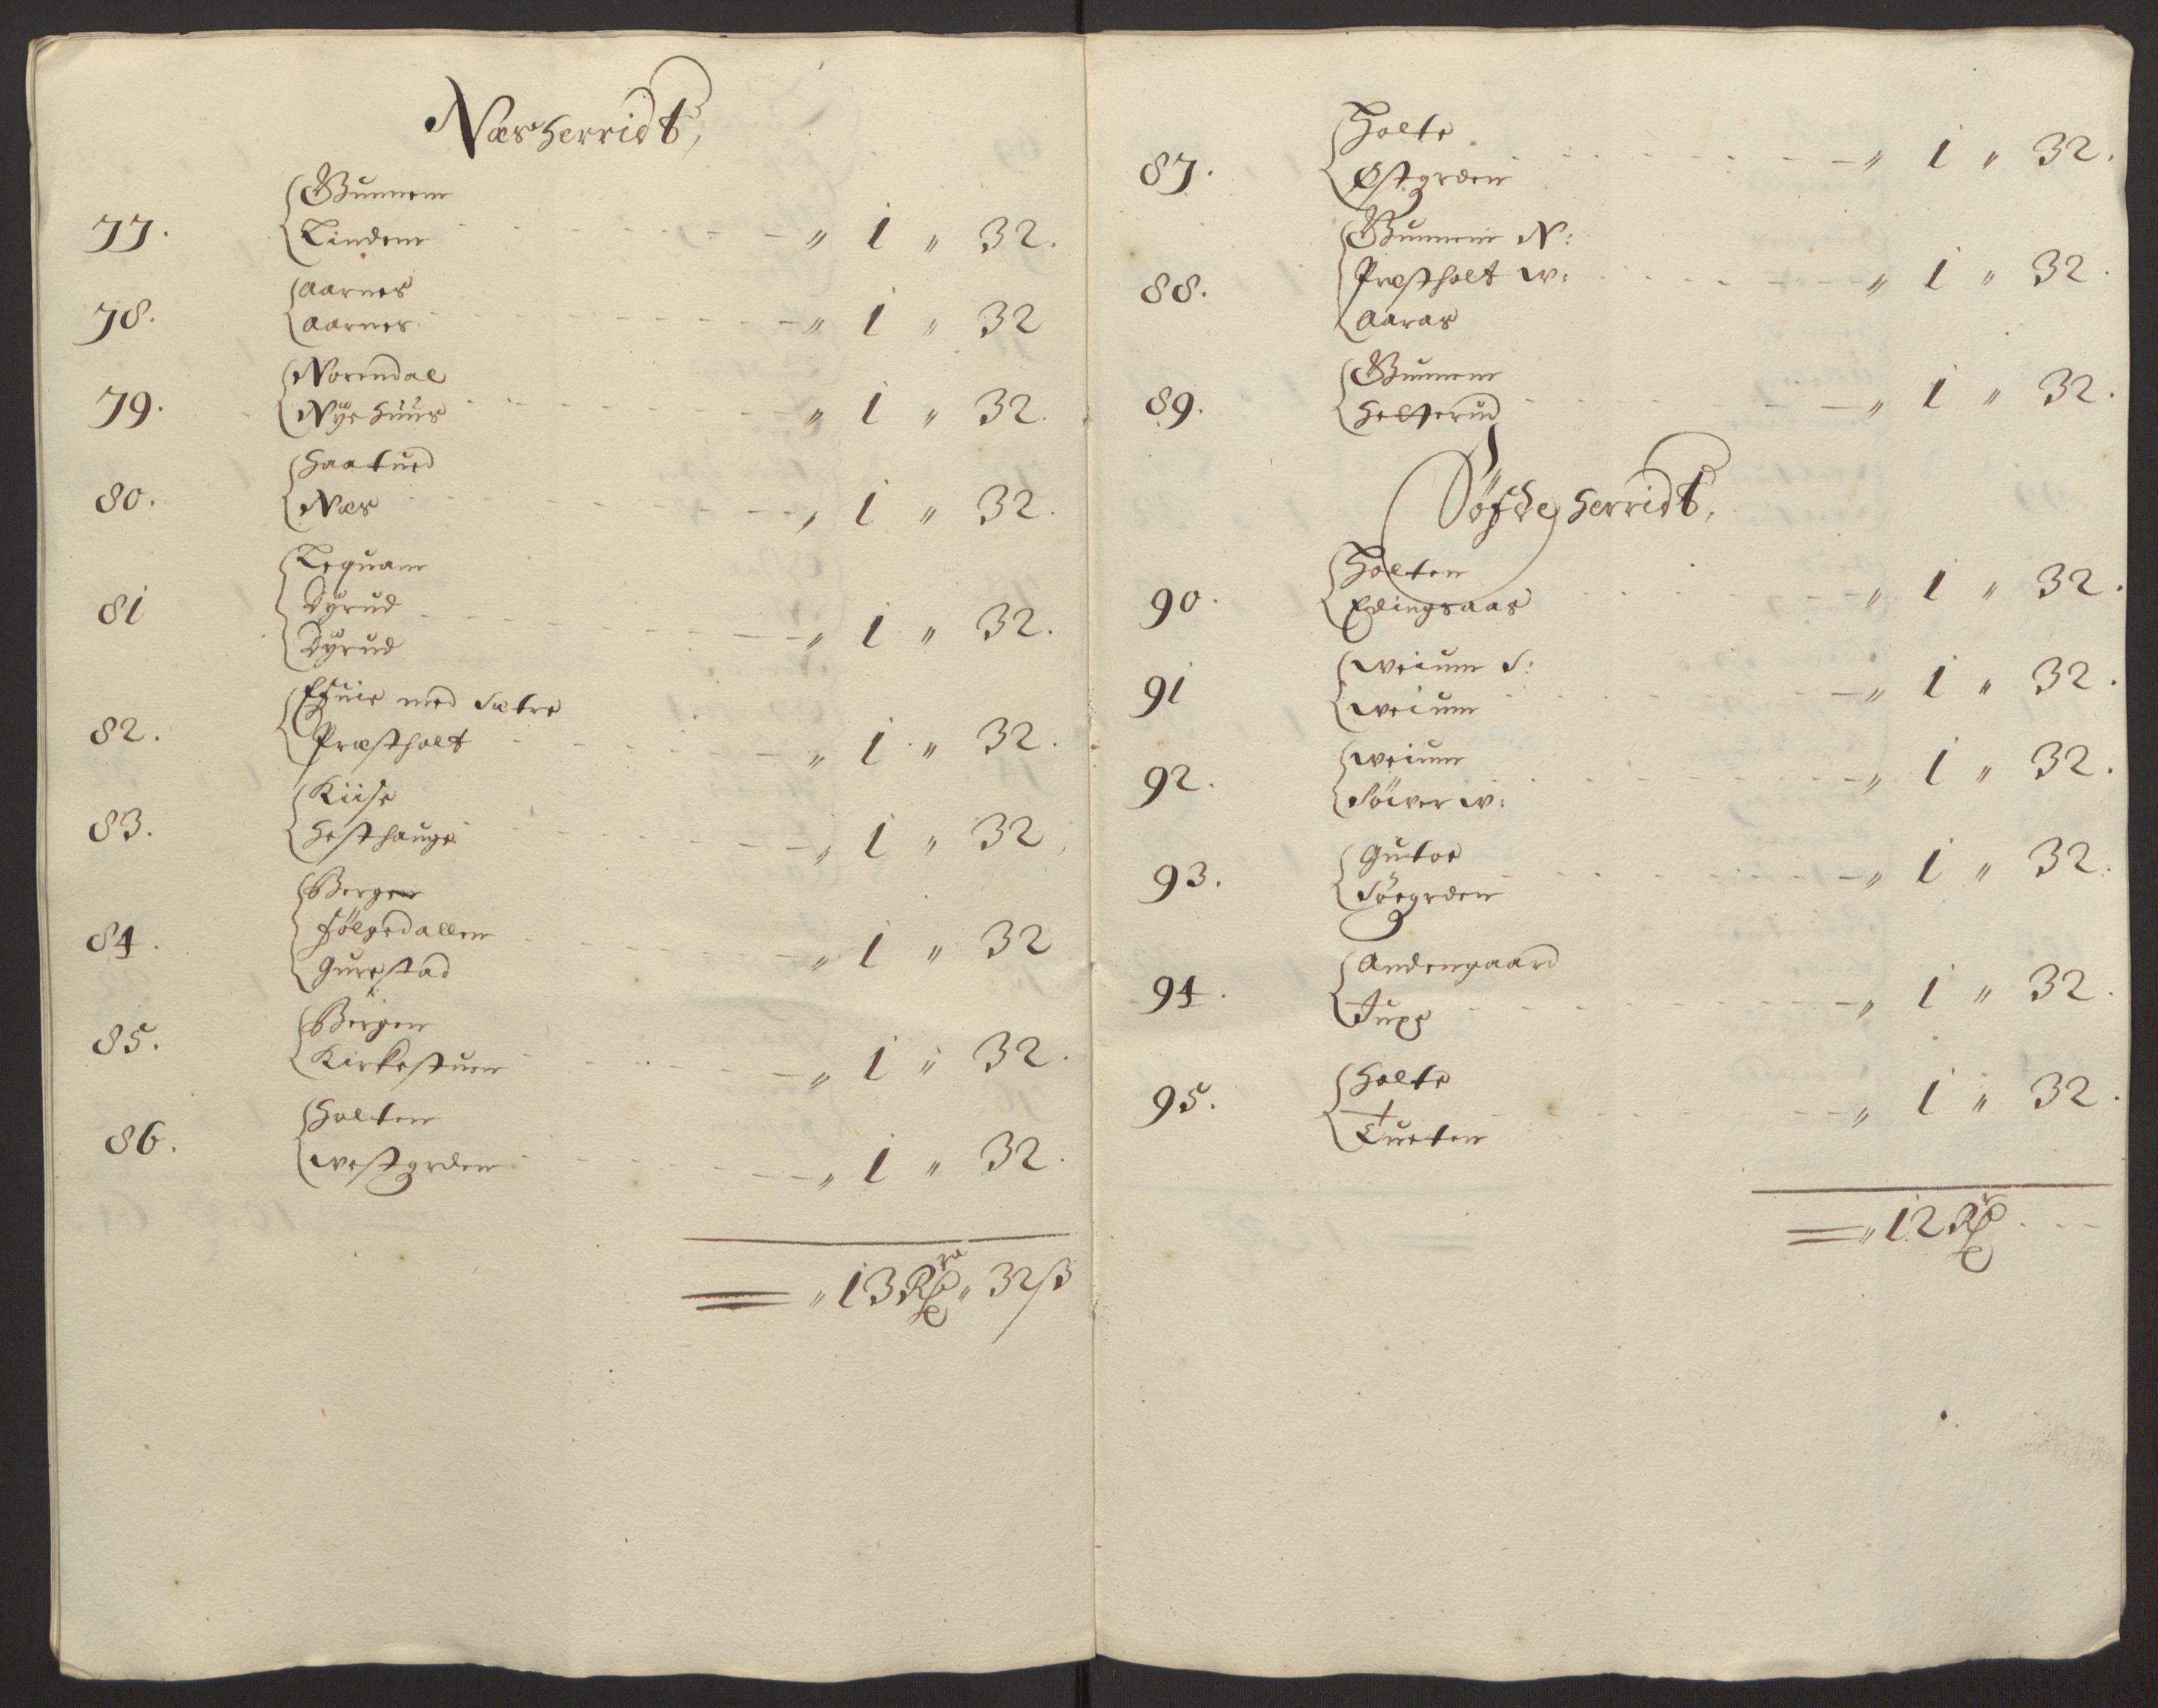 Næsherridt,
77. Gunnem
Lindem - - - " 1 " 32.
78. Aarnes
Aarnes - - - " 1 " 32
79. Norendal
Nye huus - - - " 1 " 32.
80. Haatued
Næs - - - " 1 " 32.
81 Lequam
Dyrud - - - " 1 " 32.
Dyrud
82. Efuie med Sætre
Præstholt - - - " 1 " 32.
83. Kiise
Hesthauge - - - " 1 " 32
84. Bergen
Følgedallen - - - " 1 " 32
Gurestad
85. Bergen
Kirkestuen - - - " 1 " 32.
86. Holten
westgrden - - - " 1 " 32.
" 13 Rdr " 32 ß
87. Holte
Østgrden - - - " 1 " 32.
88. Gunnem N:
Præstholt w: - - - " 1 " 32.
Aaras
89. Gunnem
Helterud - - - " 1 " 32.
Söfde herridt,
90. Holten
Edingsaas - - - " 1 " 32.
91 weium S:
weium - - - " 1 " 32.
92. weium
Söiver w: - - - " 1 " 32.
93. Guetoe
Söegrden - - - " 1 " 32.
94. Andengaard
Jupe - - - " 1 " 32.
95. Holte
Tueten - - - " 1 " 32.
" 12 Rdr - -